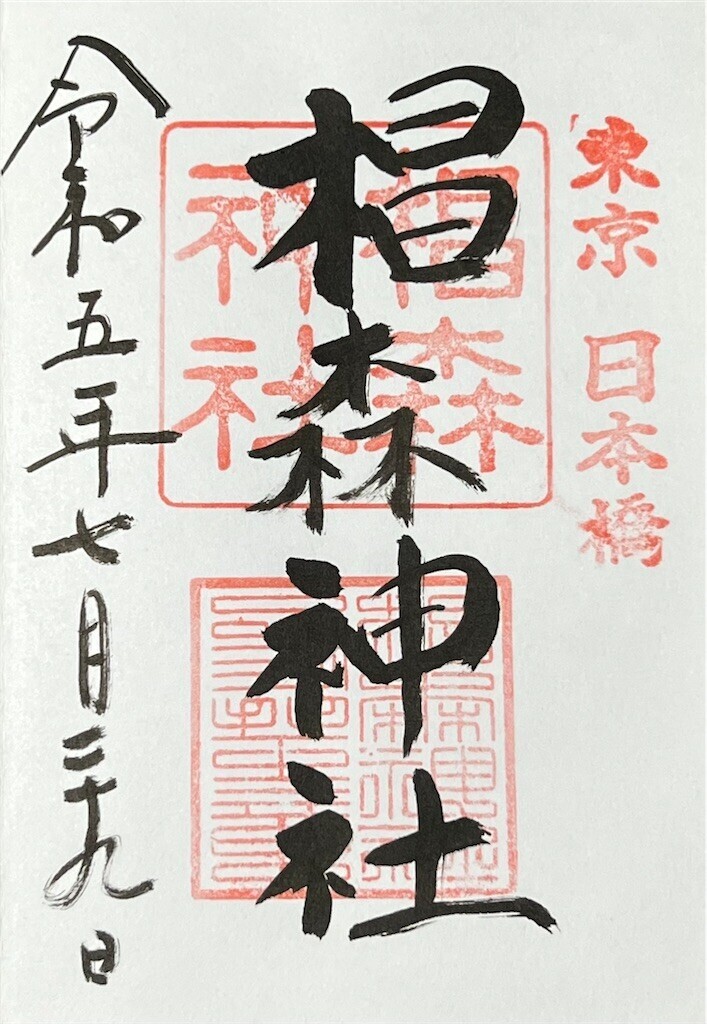 東京 日本橋
椙森神社
椙森
神社
令和五年七月二十九日